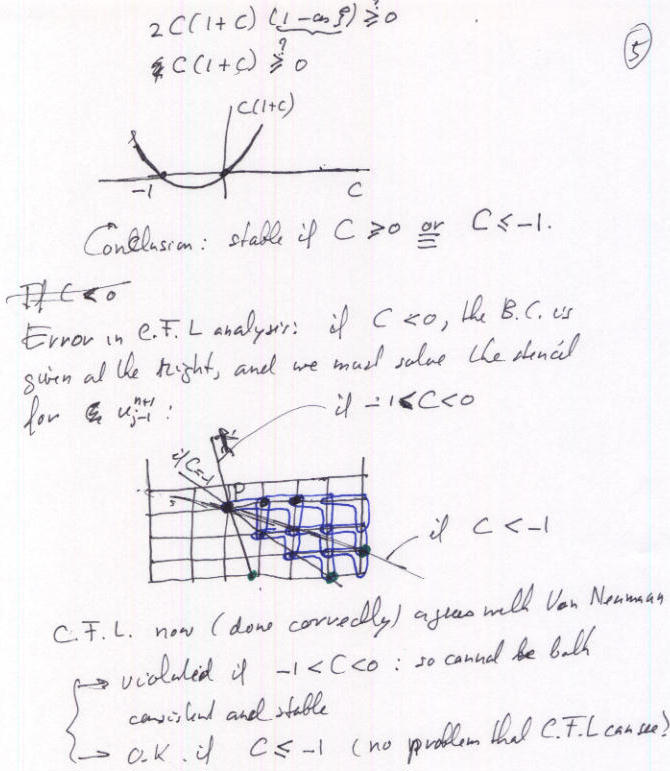 2C(1+C) (1-cos ξ) ≥? 0
5
C(1+C) ≥? 0
C(1+C)
-1
C
Conclusion: stable if C ≥ 0 or C ≤ -1.
If C < 0
Error in C.F.L analysis: if C < 0, the B.C. is
given at the right, and we must solve the stencil
for u_{j-1}^{n+1}:
if -1 < C < 0
if C=-1
P
if C < -1
C.F.L. now (done correctly) agrees with Von Neumann
→ violated if -1 < C < 0 : so cannot be both
consistent and stable
→ O.K. if C ≤ -1 (no problem that C.F.L can see)